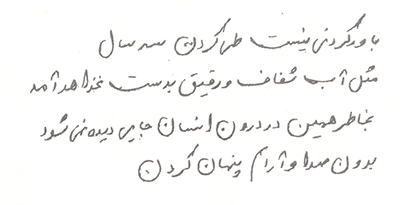 باورکردنی نیست طی کردن سه سال
مثل آب شفاف ورقیق بدست نخواهد آمد
بخاطر همین در درون انسان جایی دیده نمی شود
بدون صدا و آرام پنهان کردن